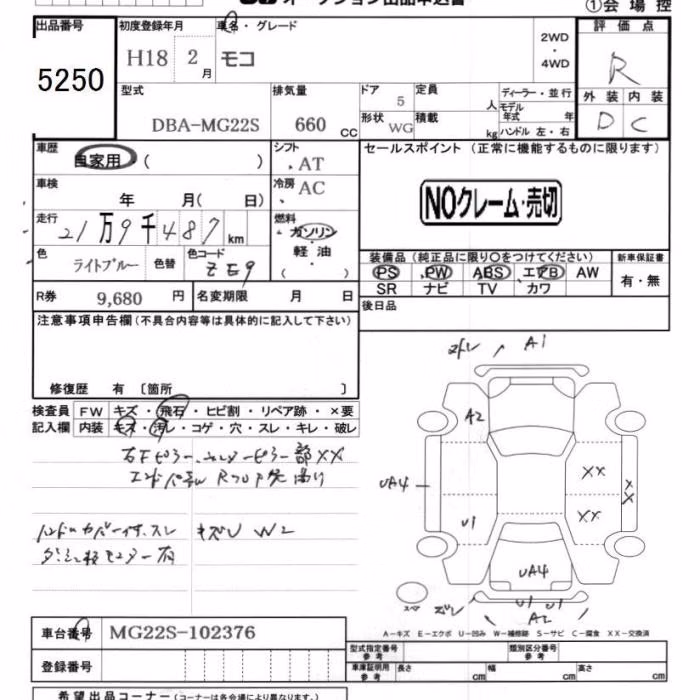 オークション出品申込書
①会場控
出品番号 初度登録年月 車名・グレード 2WD・4WD 評価点
5250 H18 2月 モコ R
型式 排気量 ドア 定員 ディーラー・並行 外装 内装
DBA-MG22S 660CC 5 人 モデル年式 年 D C
形状 WG 積載 kg ハンドル 左・右
車歴 自家用 ( ) シフト AT セールスポイント (正常に機能するものに限ります)
車検 年 月( 日) 冷房 AC NOクレーム・売切
走行 21万9千487km 燃料 ガソリン
軽油
( )
色 ライトブルー 色替 色コード ZE9 装備品(純正品に限り○をつけてください) 新車保証書
PS PW ABS エアB AW 有・無
SR ナビ TV カワ
R券 9,680円 名変期限 月 日 後日品
注意事項申告欄(不具合内容等は具体的に記入して下さい)
修復歴 有〔箇所 〕
検査員 FW キズ・飛石・ヒビ割・リペア跡・×要
記入欄 内装 キズ・汚レ・コゲ・穴・スレ・キレ・破レ
XX
キズU W2
A1
A2
UA4
XX
XX
XX
U1
UA4
スペア
U1 U1
A2
A-キズ E-エクボ U-凹み W-補修跡 S-サビ C-腐食 XX-交換済
車台番号 MG22S-102376
型式指定番号 参考 類別区分番号 参考
登録番号 車庫証明用 参考 長さ cm 幅 cm 高さ cm
希望出品コーナー(コーナーは各会場により異なります。)